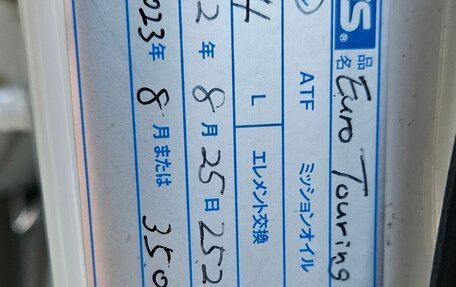 S® 品名 Euro Touring
ATF ミッションオイル
4 L エレメント交換
2年8月25日 252
023年8月または 350